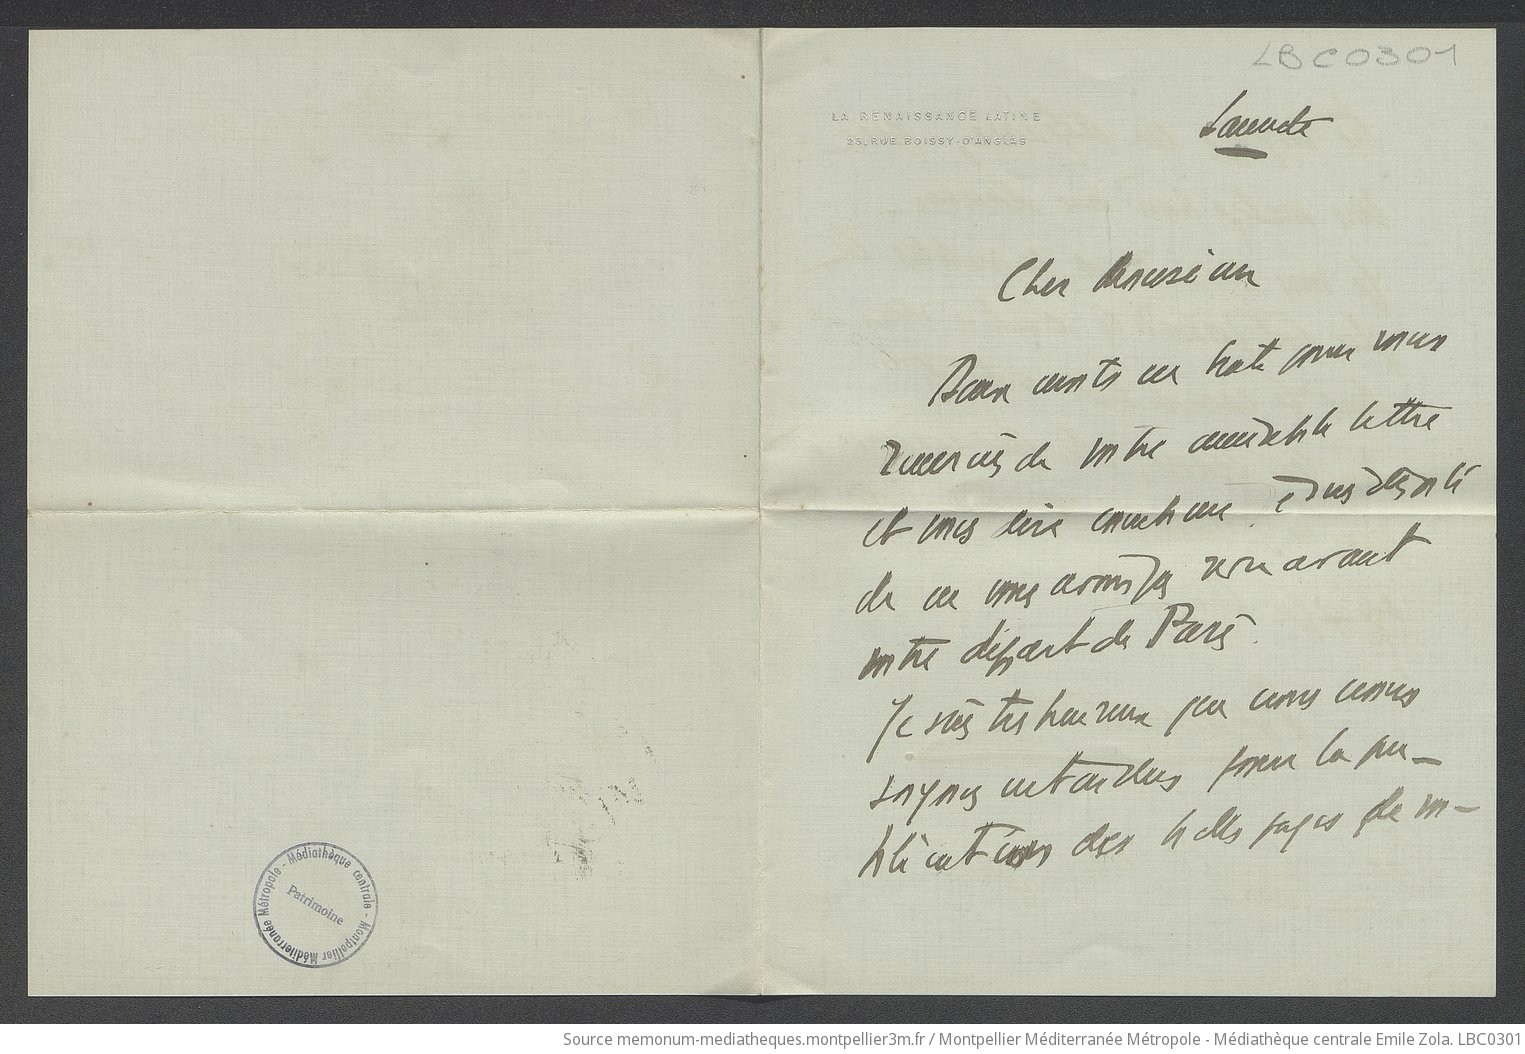 LBC0301
LA RENAISSANCE LATINE
25, RUE BOISSY-D'ANGLAS
Samedi
Cher Monsieur
Deux mots en hate pour vous
remercier de votre aimable lettre
et vous dire combien je suis désolé
de ne vous avoir pas revu avant
votre départ de Paris.
Je suis très heureux que nous nous
soyons entendus pour la pu-
blication des belles pages de M-
Médiathèque centrale - Montpellier Méditerranée Métropole -
Patrimoine
Source memonum-mediatheques.montpellier3m.fr / Montpellier Méditerranée Métropole - Médiathèque centrale Emile Zola. LBC0301